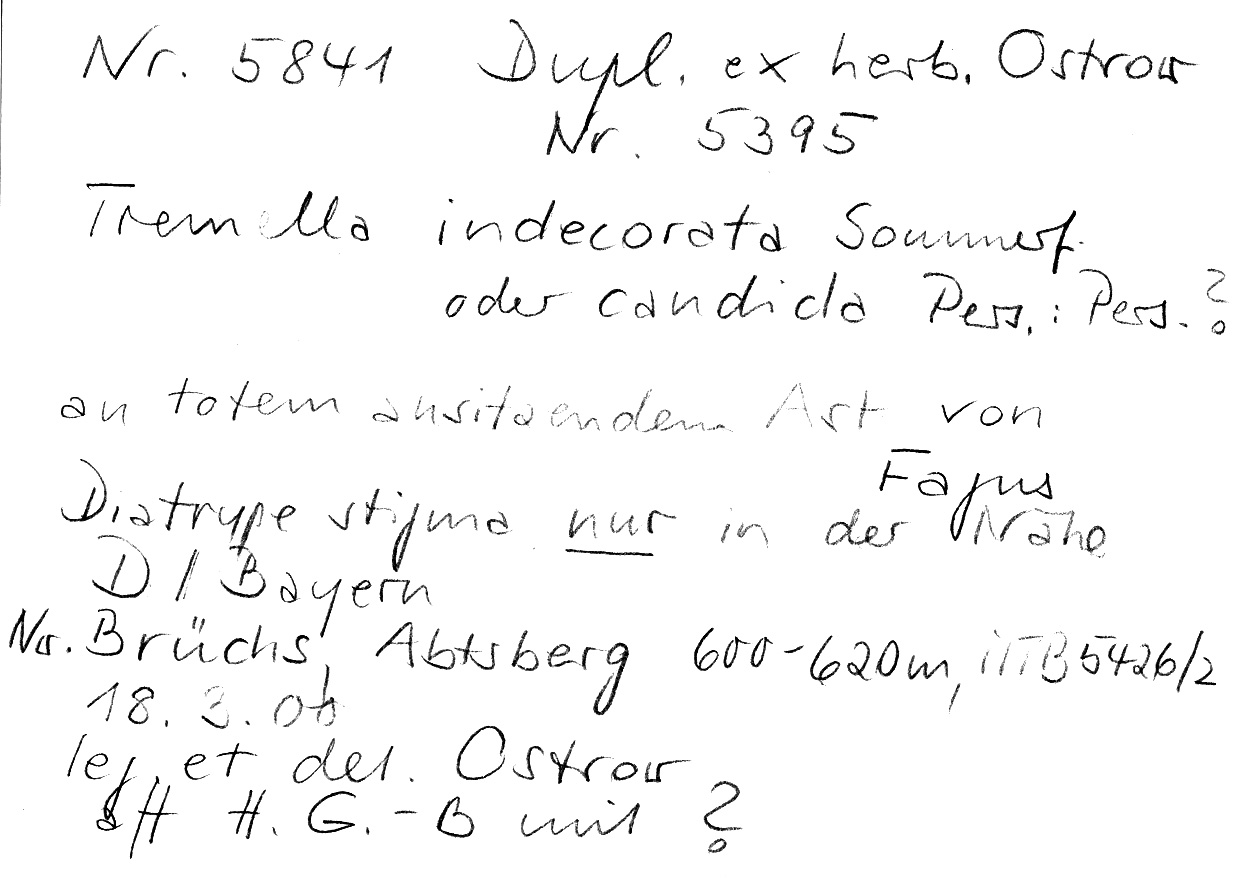 Nr. 5841 Dupl. ex herb. Ostrow
Nr. 5395
Tremella indecorata Sommerf.
oder candida Pers. : Pers. ?
an totem ansitzendem Ast von
Fagus
Diatrype stigma nur in der Nähe
D / Bayern
Nw. Brüchs, Abtsberg 600-620m, MTB 5426/2
18. 3. 06
leg. et det. Ostrow
H. G. - B mit ?